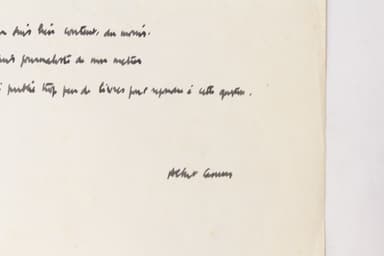 suis bien content, du moins.
journaliste de mon métier
publié trop peu de livres pour répondre à cette question.
Albert Camus